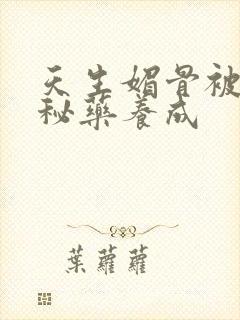 天生媚骨被
秘藥養成
葉蘿蘿